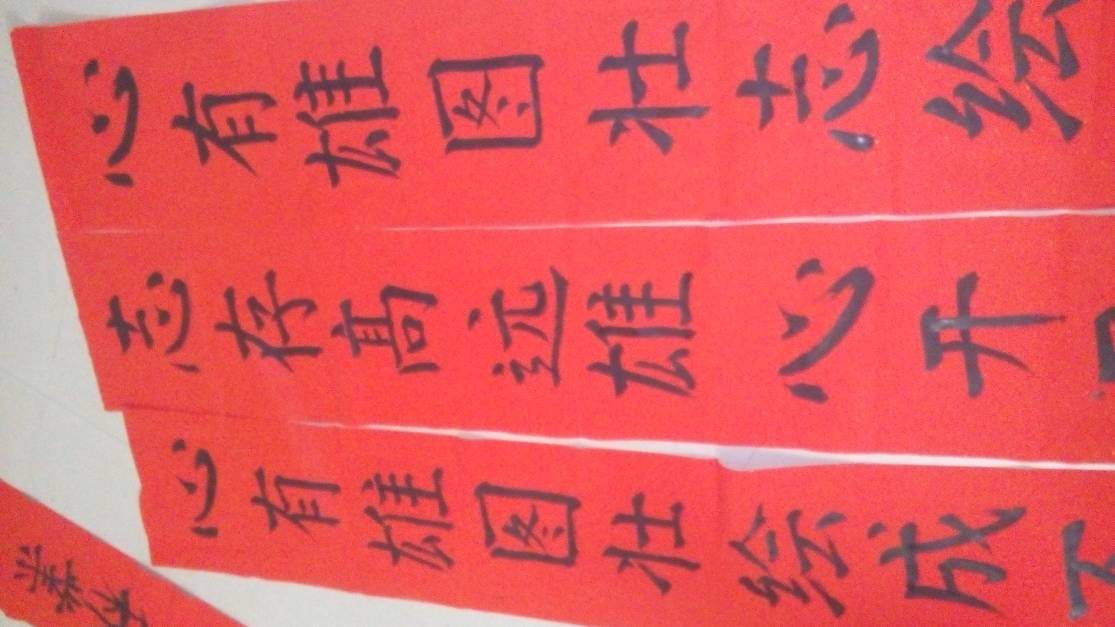 心有雄图壮志绘
志存高远雄心开
心有雄图壮绘成